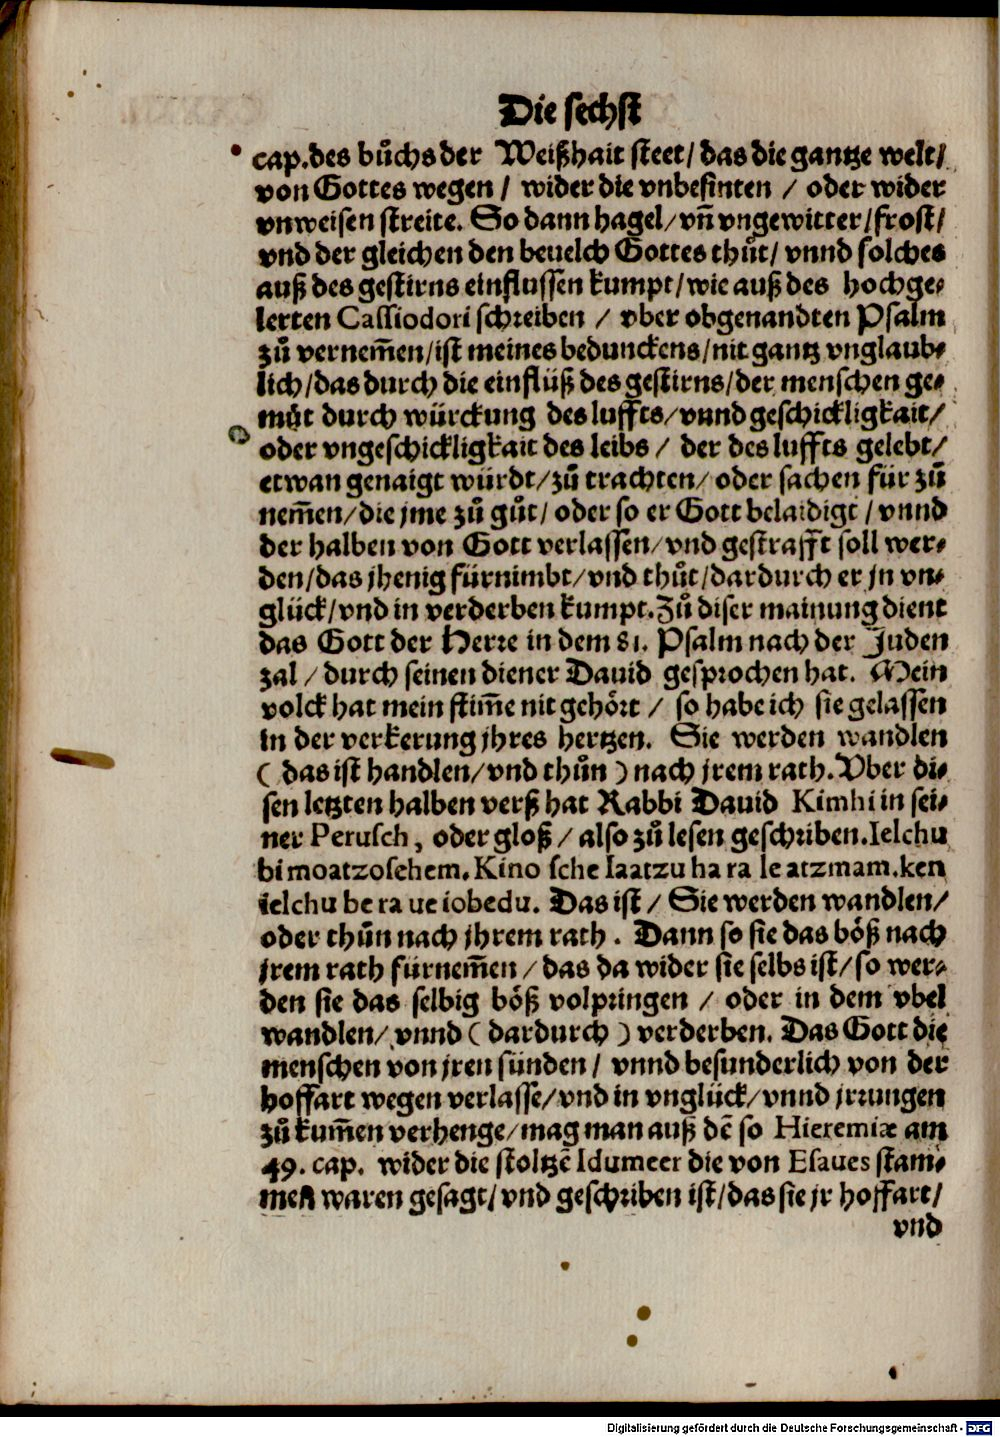 Die sechst
cap.des bůchs der Weißhait steet/ das die gantze welt/
von Gottes wegen / wider die vnbesinten / oder wider
vnweisen streite. So dann hagel/vñ vngewitter/frost/
vnd der gleichen den beuelch Gottes thůt/ vnnd solches
auß des gestirns einflussen kumpt/wie auß des hochge⸗
lerten Cassiodori schreiben / vber obgenandten Psalm
zů vernem̃en/ist meines bedunckens/nit gantz vnglaub⸗
lich/das durch die einflüß des gestirns/der menschen ge⸗
můt durch würckung des luffts/vnnd geschickligkait/
oder vngeschickligkait des leibs / der des luffts gelebt/
etwan genaigt würdt/zů trachten/oder sachen für zů
nem̃en/die jme zů gůt/oder so er Gott belaidigt / vnnd
der halben von Gott verlassen/vnd gestrafft soll wer⸗
den/das jhenig fürnimbt/vnd thůt/dardurch er jn vn⸗
glück/vnd in verderben kumpt.Zů diser mainung dient
das Gott der Herre in dem 81. Psalm nach der Juden
zal / durch seinen diener Dauid gesprochen hat. Mein
volck hat mein stim̃e nit gehört / so habe ich sie gelassen
in der verkerung jhres hertzen. Sie werden wandlen
( das ist handlen/vnd thůn ) nach jrem rath. Vber di⸗
sen letzten halben verß hat Rabbi Dauid Kimhi in sei⸗
ner Perusch, oder gloß / also zů lesen geschriben.Ielchu
bi moatzoschem. Kino sche Iaatzu ha ra le atzmam.ken
ielchu be ra ue iobedu. Das ist / Sie werden wandlen/
oder thůn nach jhrem rath . Dann so sie das böß nach
jrem rath fürnem̃en / das da wider sie selbs ist/ so wer⸗
den sie das selbig böß volpringen / oder in dem vbel
wandlen/ vnnd ( dardurch ) verderben. Das Gott die
menschen von jren sünden / vnnd besunderlich von der
hoffart wegen verlasse/vnd in vnglück/vnnd jrrungen
zů kum̃en verhenge/mag man auß dẽ so Hieremiæ am
49. cap. wider die stoltzẽ Idumeer die von Esaues stam⸗
men waren gesagt/vnd geschriben ist/das sie jr hoffart/
vnd
Digitalisierung gefördert durch die Deutsche Forschungsgemeinschaft - DFG